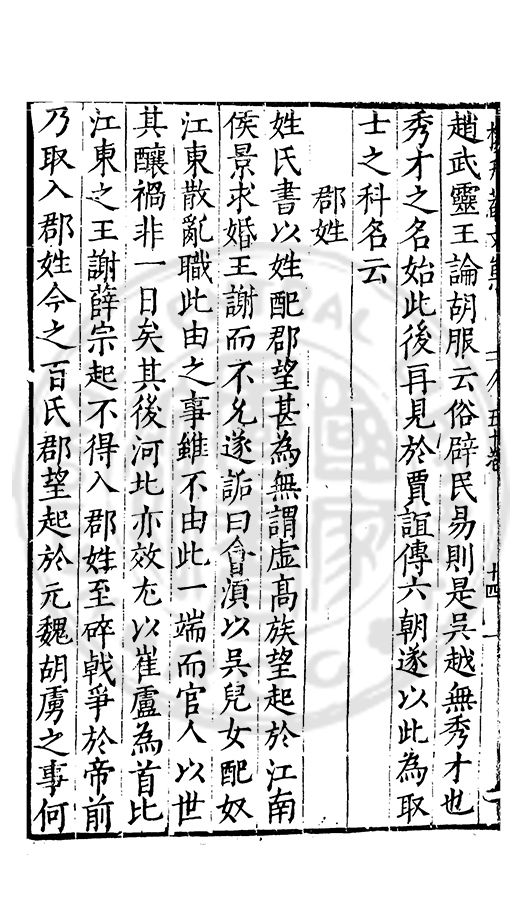 趙武靈王論胡服云俗辟民易則是吳越無秀才也
秀才之名始此後再見於賈誼傳六朝遂以此為取
士之科名云
郡姓
姓氏書以姓配郡望甚為無謂虛高族望起於江南
侯景求婚王謝而不允遂詬曰會湏以吳兒女配奴
江東散亂職此由之事雖不由此一端而官人以世
其釀禍非一日矣其後河北亦效尤以崔盧為首比
江東之王謝薛宗起不得入郡姓至碎戟爭於帝前
乃取入郡姓今之百氏郡望起於元魏胡虜之事何
五十卷
十四